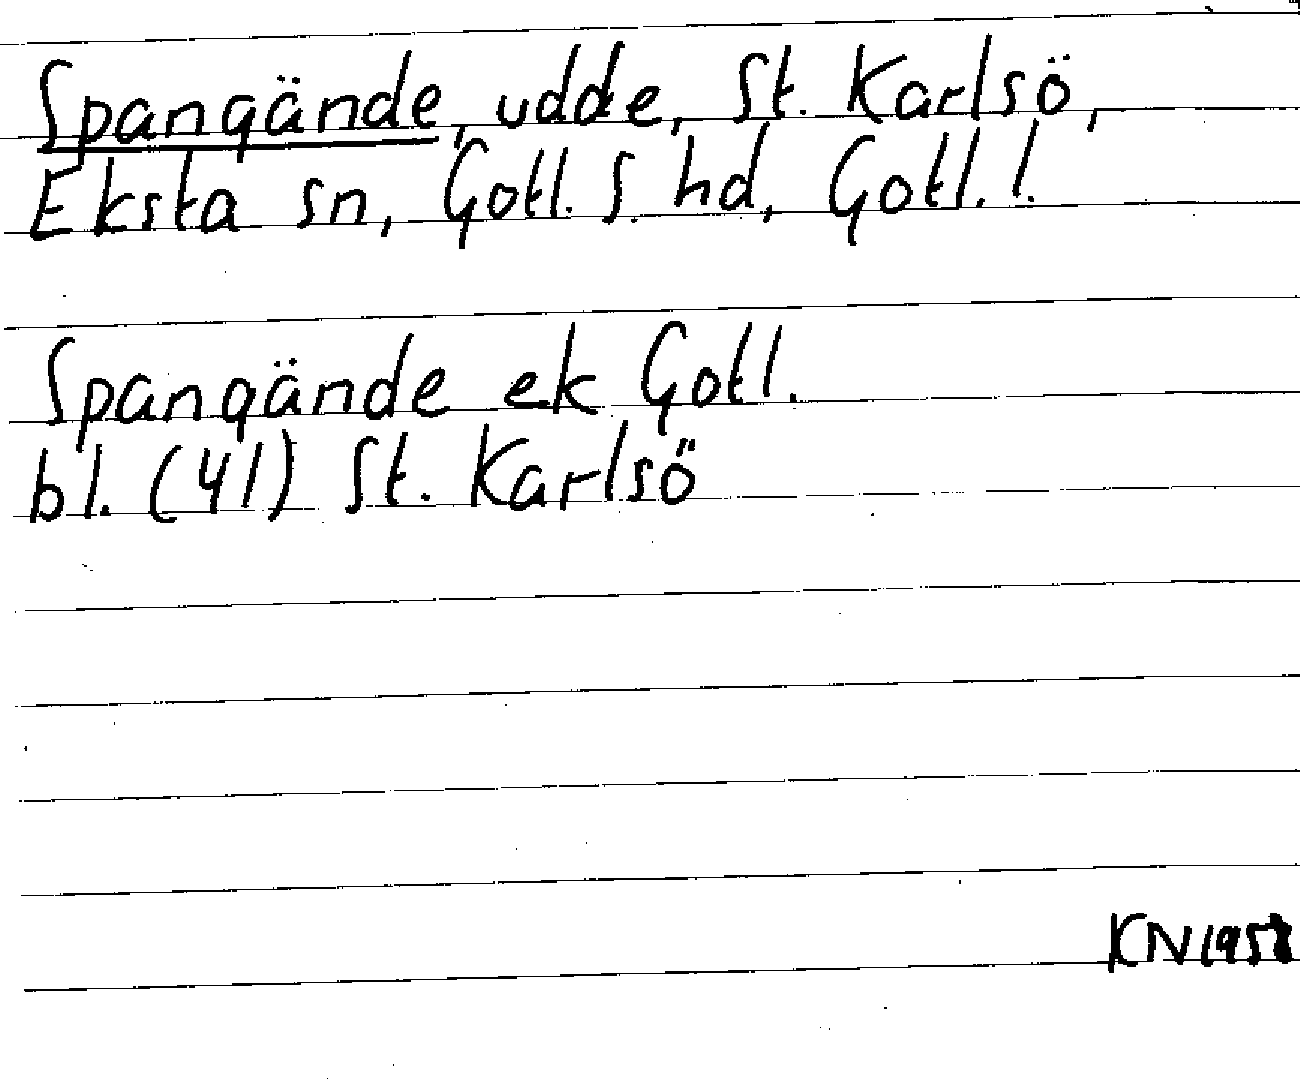 Spangände, udde, St. Karlsö,
Eksta sn, Gotl. S. hd, Gotl. l.
Spangände ek Gotl.
bl. (41) St. Karlsö
KN